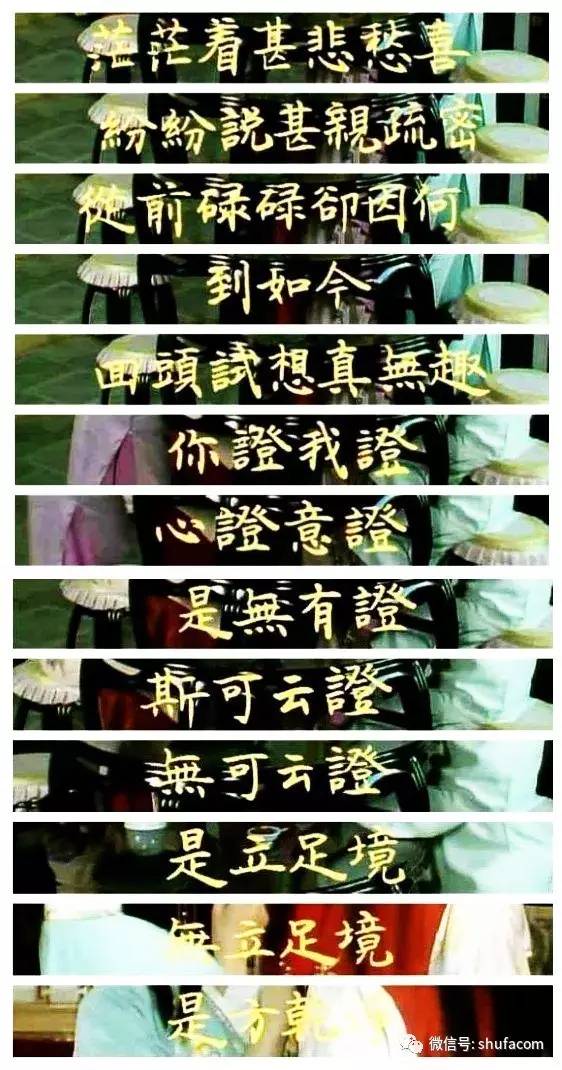 茫茫着甚悲愁喜
紛紛説甚親疏密
從前碌碌卻因何
到如今
回頭試想真無趣
你證我證
心證意證
是無有證
斯可云證
無可云證
是立足境
無立足境
是方乾
微信号: shufacom